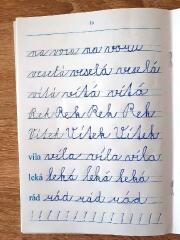 na voru na voru
veselá veselá veselá
vítá vítá vítá
Rek Rek Rek Rek
Vítek Vítek Vítek
víla víla víla víla
leká leká leká leká
rád rád rád rád